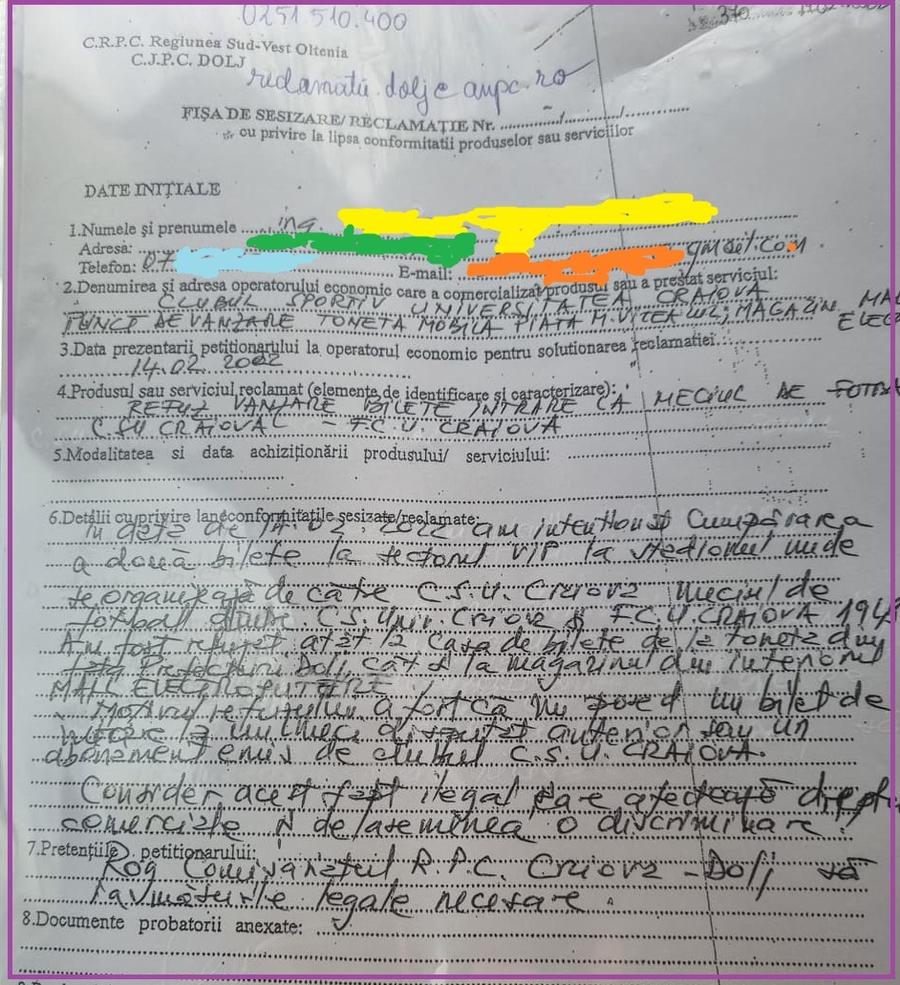 0251 510.400
370
C.R.P.C. Regiunea Sud-Vest Oltenia
C.J.P.C. DOLJ
reclamatii.dolj@anpc.ro
FIȘA DE SESIZARE/ RECLAMAȚIE Nr. ............/............/............
cu privire la lipsa conformitatii produselor sau serviciilor
DATE INIȚIALE
1.Numele și prenumele ..... ing
Adresa: gmail.com
Telefon: 07 E-mail:
2.Denumirea și adresa operatorului economic care a comercializat produsul sau a prestat serviciul:
CLUBUL SPORTIV UNIVERSITATEA CRAIOVA
PUNCT DE VANZARE TONETA MOBILA PIATA M. VITEAZUL; MAGAZIN MALL
ELEC
3.Data prezentarii petitionarului la operatorul economic pentru solutionarea reclamatiei:
14.02.2002
4.Produsul sau serviciul reclamat (elemente de identificare si caracterizare):
REFUZ VANZARE BILETE INTRARE LA MECIUL DE FOTBAL
C.SU CRAIOVA - F.C.U. CRAIOVA
5.Modalitatea si data achiziționării produsului/ serviciului:
6.Detalii cu privire la neconformitatile sesizate/reclamate:
In data de 14.02.2022 am intentionat Cumpărarea
a două bilete la sectorul VIP la stadionul unde
se organizează de către C.S.U. Craiova meciul de
fotbal dintre C.S. Univ. Craiova si F.C.U. CRAIOVA 1948
Am fost refuzat atât la casa de bilete de la toneta din
fata Prefecturii Dolj, cât si la magazinul din interiorul
MALL ELECTROPUTERE
Motivul refuzului a fost că nu posed un bilet de
intrare la un meci disputat anterior sau un
abonament emis de clubul C.S.U. CRAIOVA.
Consider acest fapt ilegal care afectează drept
comerciale si de asemenea o discriminare.
7.Pretențiile petitionarului:
Rog Comisariatul R.P.C. Craiova - Dolj să
ia măsurile legale necesare.
8.Documente probatorii anexate: